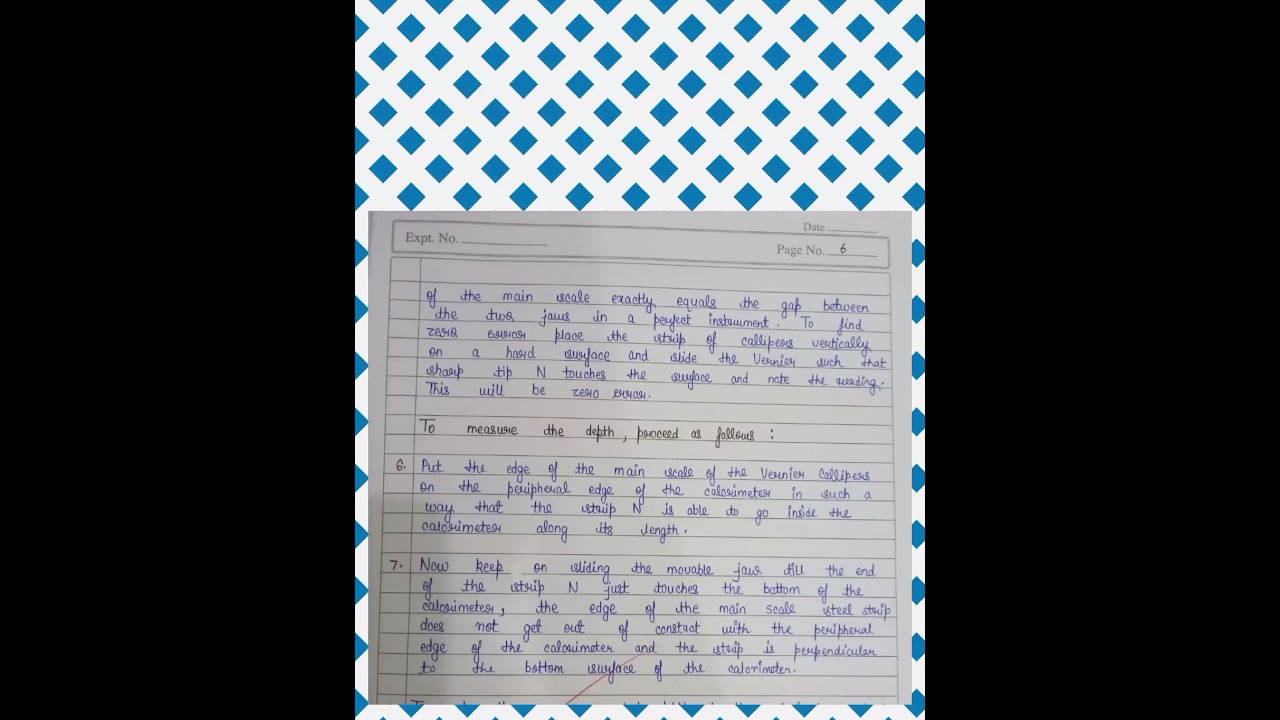 Date
Expt. No.
Page No. 6
of the main scale exactly equals the gap between
the two jaws in a perfect instrument. To find
zero error place the strip of callipers vertically
on a hard surface and slide the Vernier such that
sharp tip N touches the surface and note the reading.
This will be zero error.
To measure the depth, proceed as follows :
6. Put the edge of the main scale of the Vernier Callipers
on the peripheral edge of the calorimeter in such a
way that the strip N is able to go inside the
calorimeter along its length.
7. Now keep on sliding the movable jaw till the end
of the strip N just touches the bottom of the
calorimeter, the edge of the main scale steel strip
does not get out of constact with the peripheral
edge of the calorimeter and the strip is perpendicular
to the bottom surface of the calorimeter.